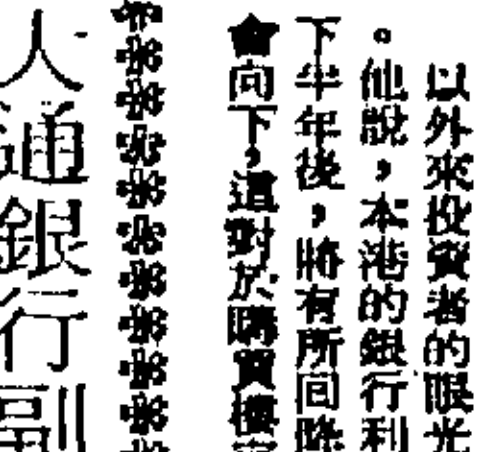 以外來投資者的眼光
。他說，本港的銀行利
下半年後，將有所回降
會向下，這對於購買樓
人通銀行副